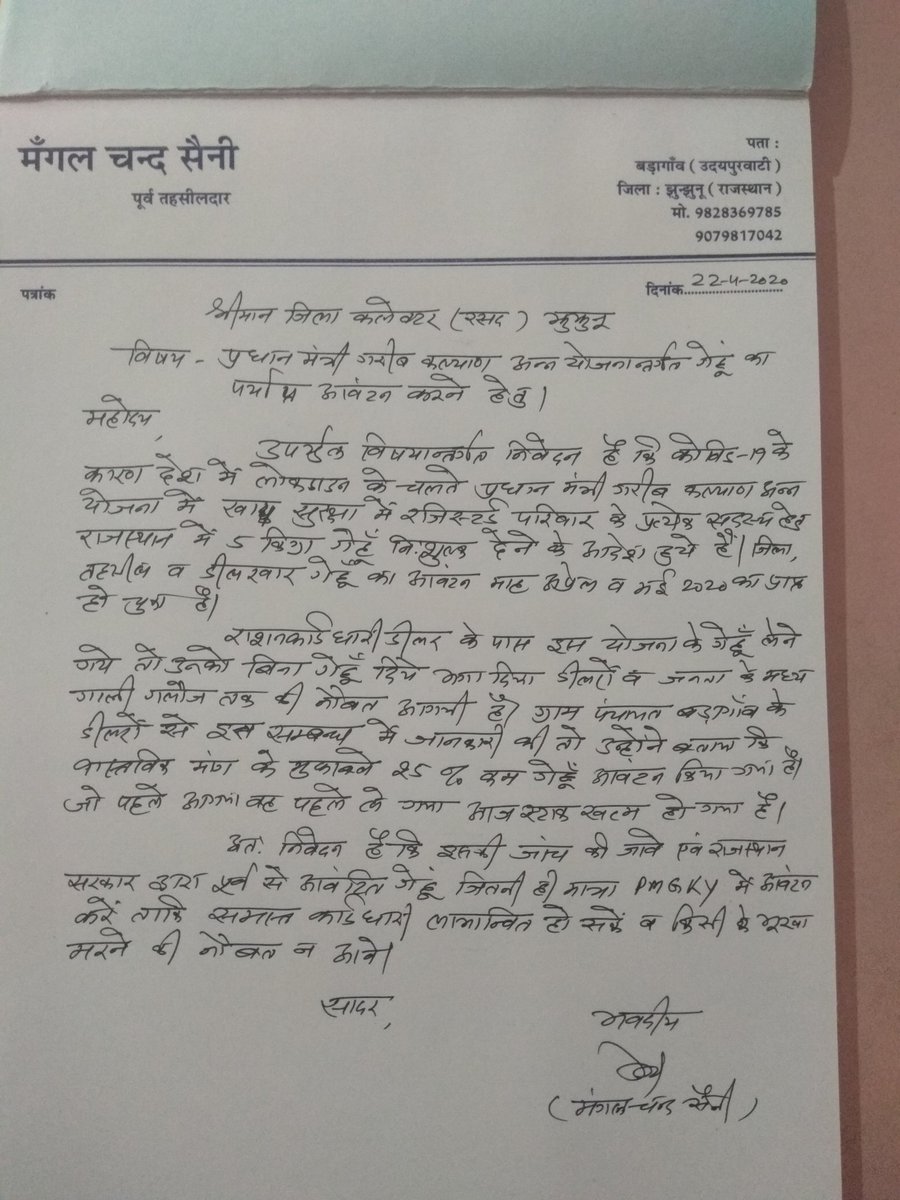 मँगल चन्द सैनी
पूर्व तहसीलदार
पता :
बड़ागाँव ( उदयपुरवाटी )
जिला : झुन्झुनू ( राजस्थान )
मो. 9828369785
9079817042
पत्रांक
दिनांक 22-4-2020
श्रीमान जिला कलेक्टर (रसद) झुझुनू
विषय - प्रधान मंत्री गरीब कल्याण अन्न योजनान्तर्गत गेहूं का
पर्याप्त आवंटन करने हेतु।
महोदय,
उपर्युक्त विषयान्तर्गत निवेदन है कि कोविड-19 के
कारण देश में लोकडाउन के चलते प्रधान मंत्री गरीब कल्याण अन्न
योजना में खाद्य सुरक्षा में रजिस्टर्ड परिवार के प्रत्येक सदस्य हेतु
राजस्थान में 5 किग्रा गेहूँ नि:शुल्क देने के आदेश हुये हैं। जिला,
तहसील व डीलरवार गेहूँ का आवंटन माह अप्रेल व मई 2020 का प्राप्त
हो चुका है।
राशनकार्डधारी डीलर के पास इस योजना के गेहूँ लेने
गये तो उनको बिना गेहूँ दिये भगा दिया डीलरों व जनता के मध्य
गाली गलौज तक की नौबत आगयी है। ग्राम पंचायत बड़ागाँव के
डीलरों से इस सम्बन्ध में जानकारी की तो उन्होने बताया कि
वास्तविक मांग के मुकाबले 25 % कम गेहूँ आवंटन किया गया है।
जो पहले आगया वह पहले ले गया आज स्टाक खत्म हो गया है।
अत: निवेदन है कि इसकी जांच की जावे एवं राजस्थान
सरकार द्वारा पूर्व से आवंटित गेहूं जितनी ही मात्रा PMGKY में आवंटन
करें ताकि समस्त कार्डधारी लाभान्वित हो सकें व किसी के भूखा
मरने की नौबत न आवे।
सादर,
भवदीय
(मंगल चन्द सैनी)